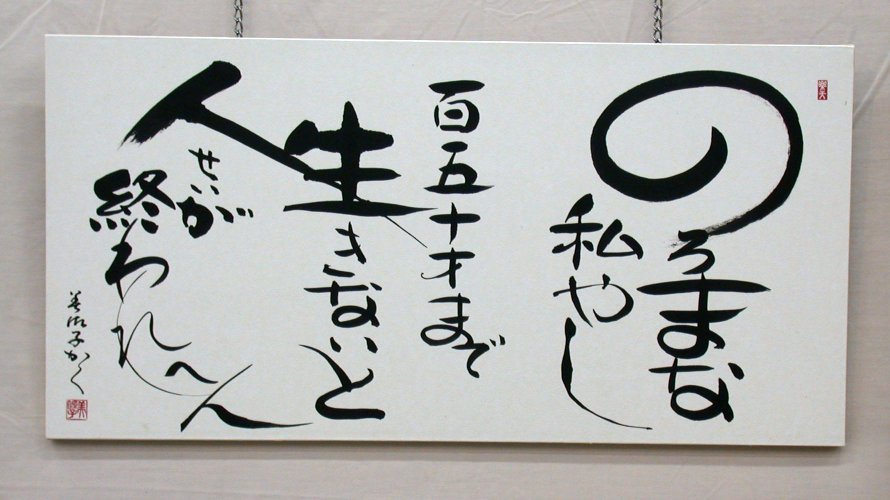 のろまな
私やし
百五十才まで
生きないと
人せいが
終われへん
美佐子かく